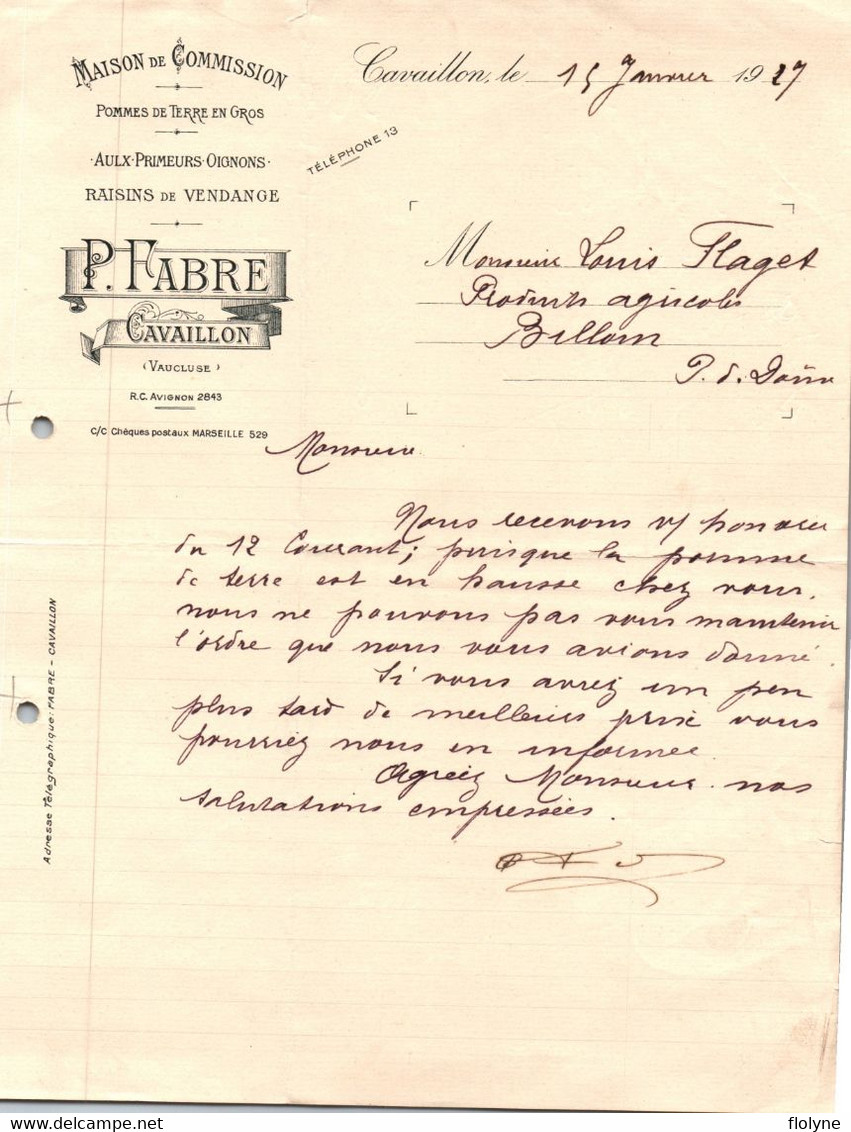 MAISON DE COMMISSION
POMMES DE TERRE EN GROS
·AULX·PRIMEURS·OIGNONS·
RAISINS DE VENDANGE
P. FABRE
CAVAILLON
(VAUCLUSE)
R.C. AVIGNON 2843
C/C Chèques postaux MARSEILLE 529
TÉLÉPHONE 13
Cavaillon, le 15 Janvier 1927
Monsieur Louis Flaget
Produits agricoles
Billom
P. d. Dôme
Monsieur
Nous recevons v/ honorée
du 12 Courant; puisque la pomme
de terre est en hausse chez vous,
nous ne pouvons pas vous maintenir
l'ordre que nous vous avions donné.
Si vous avez un peu
plus tard de meilleurs prix vous
pourriez nous en informer.
Agréez Monsieur nos
salutations empressées.
Adresse Télégraphique: FABRE - CAVAILLON
delcampe.net
flolyne